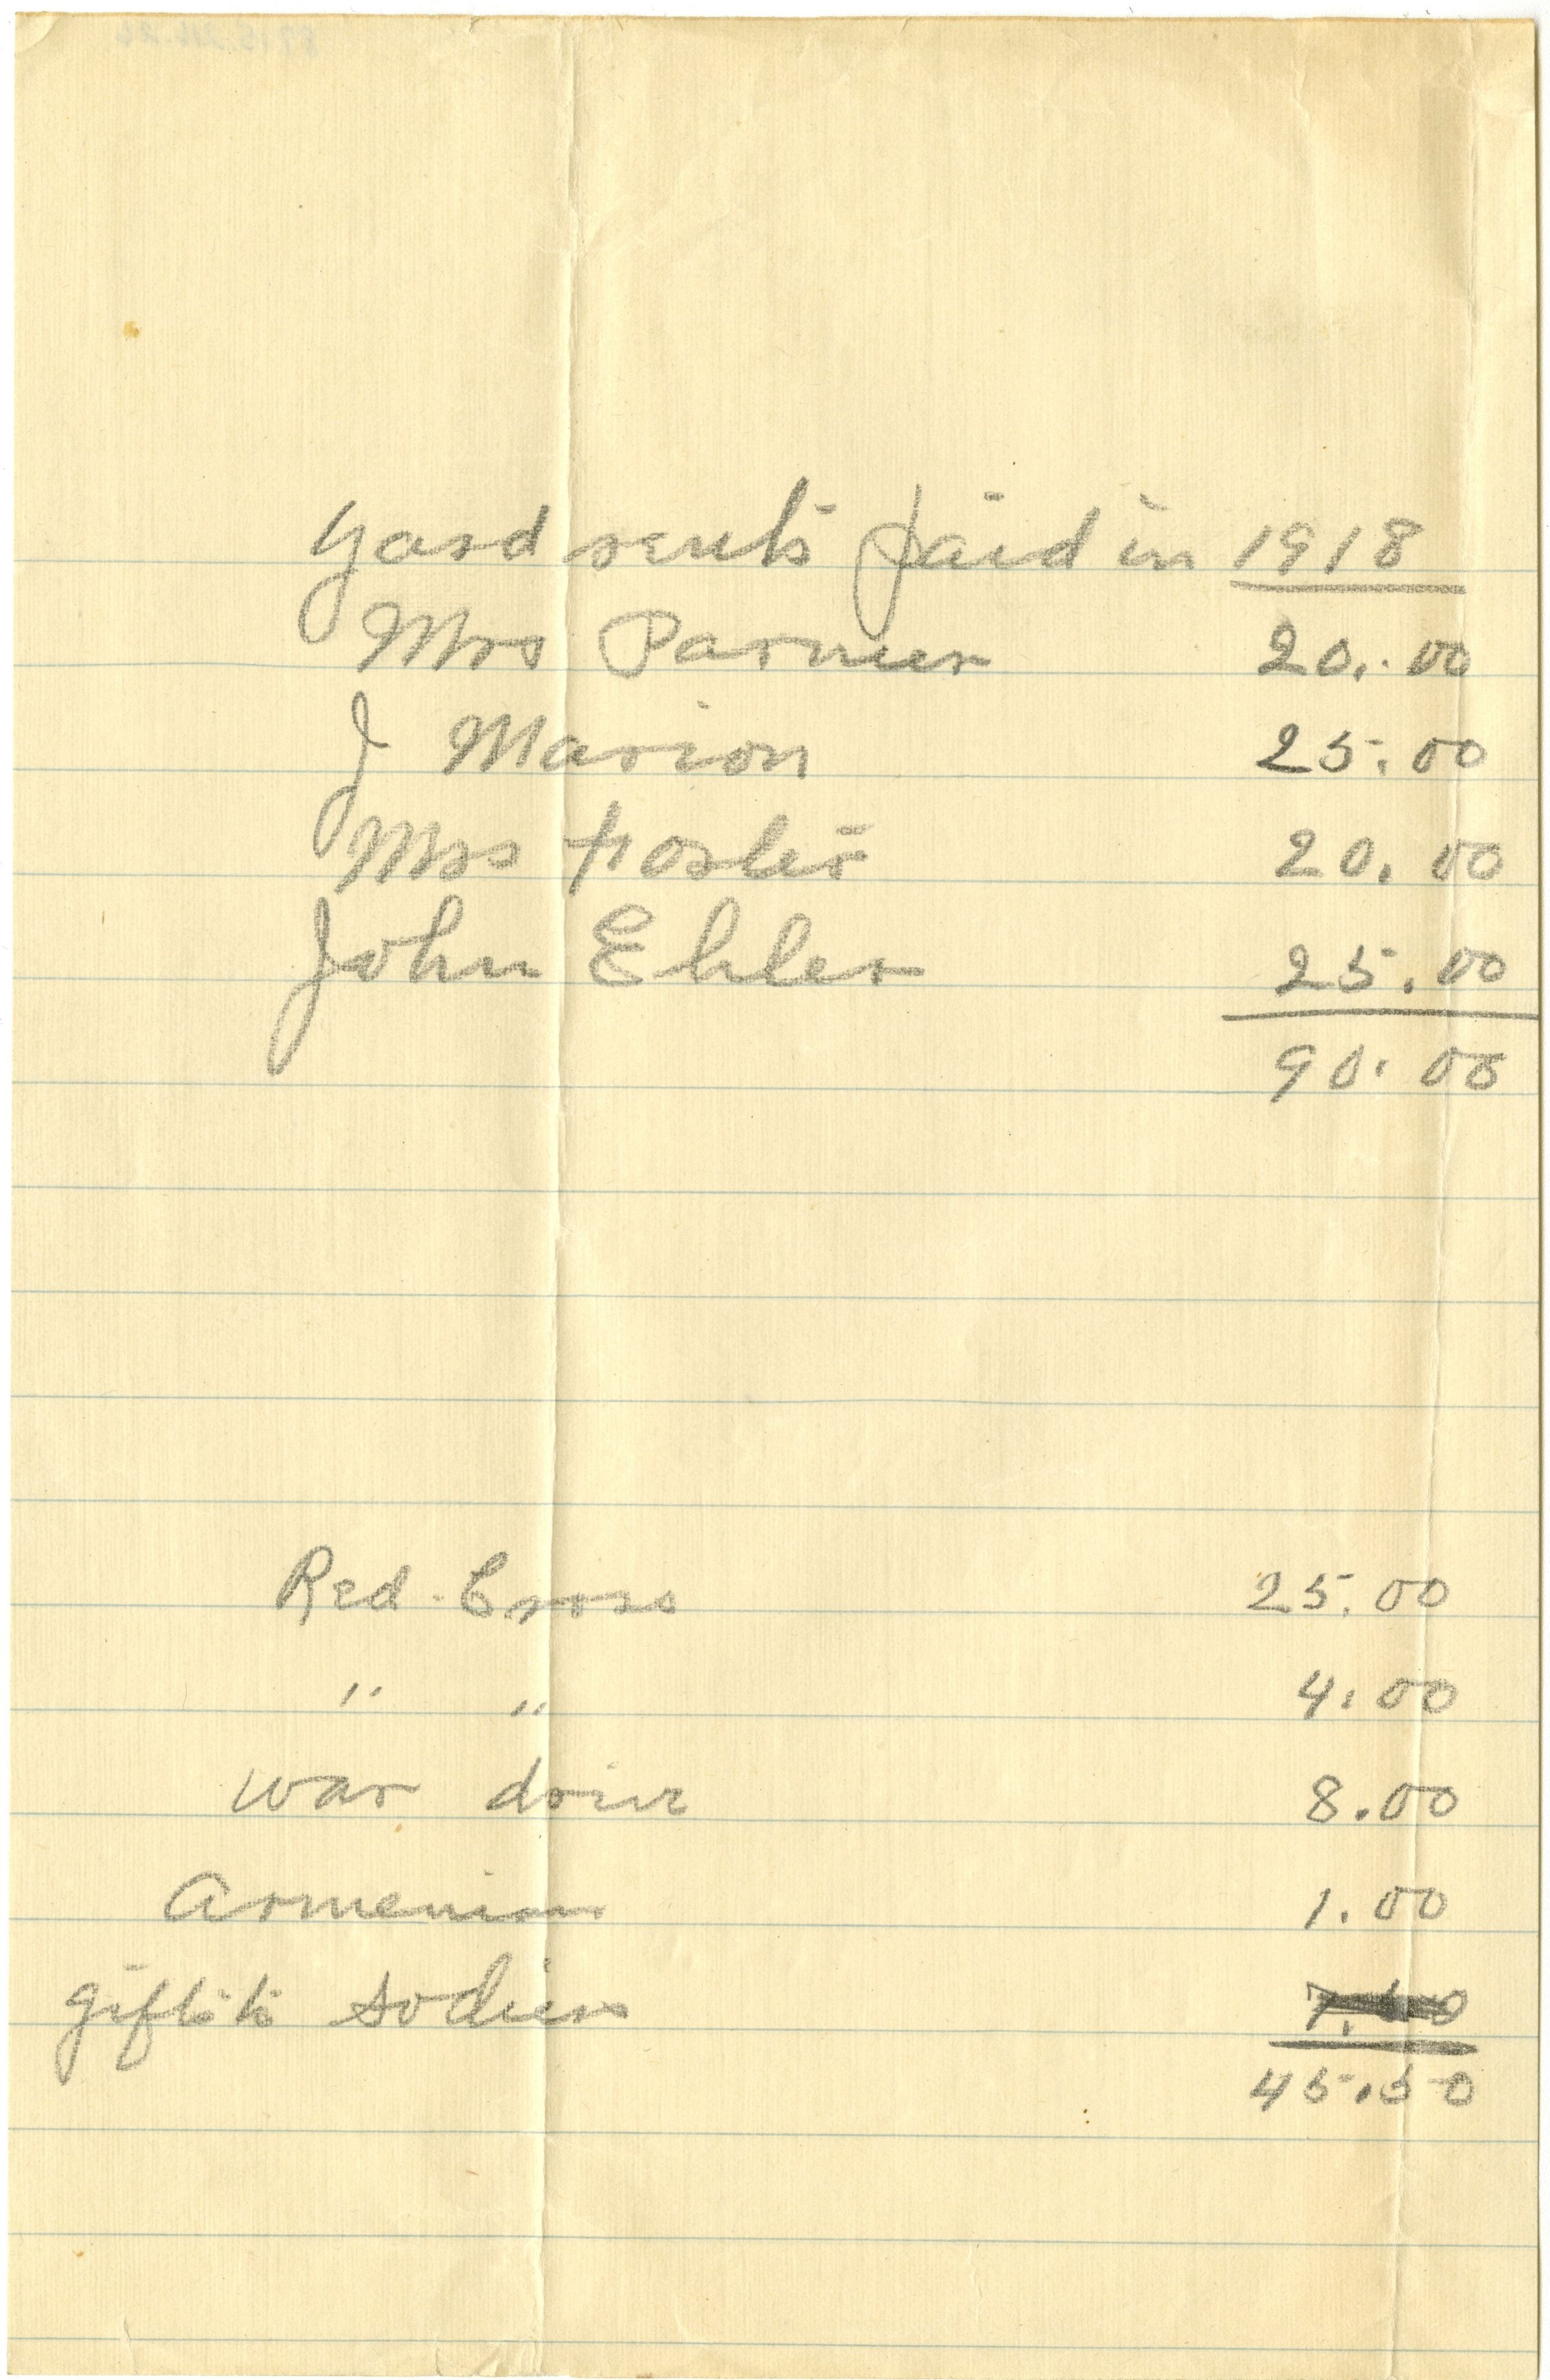 Yard rents paid in 1918
Mrs Parmer 20.00
J Marion 25.00
Mrs Foster 20.00
John Ehler 25.00
90.00
Red Cross 25.00
" " 4.00
war drive 8.00
Armenian 1.00
gifts to sodiers
45.50